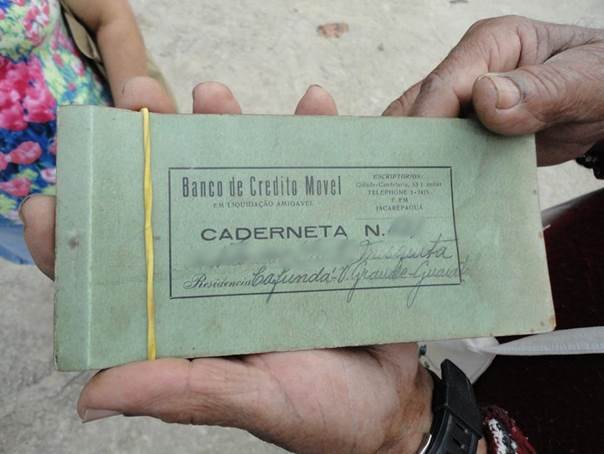 Banco de Credito Movel
EM LIQUIDAÇÃO AMIGAVEL
ESCRIPTORIOS:
Cidade-Candelaria, 53 1 andar
TELEPHONE
E EM
JACAREPAGUÁ
CADERNETA N.
Residencia Cafundá-V. Grande-